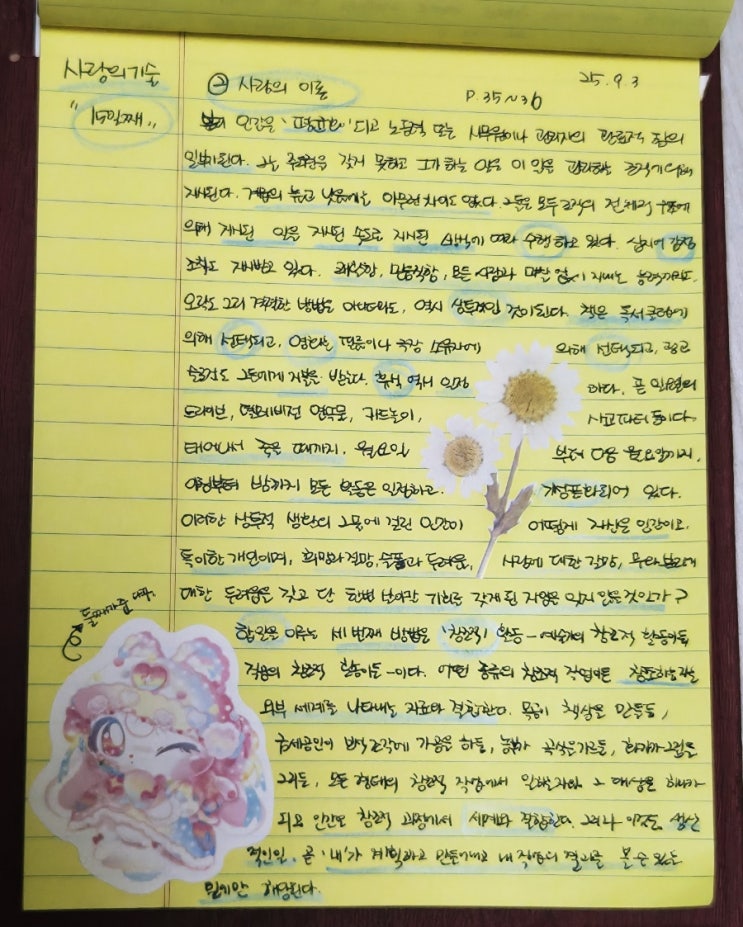 사랑의 기술
"15일째"
② 사랑의 이론
25. 9. 3
P.35~36
인간은 '평균인'되고 노동력 또는 사무원이나 관리자의 관료적 힘의
일부가 된다. 그는 주도권을 갖지 못하고 그가 하는 일은 이 일을 관리하는 조직에 의해
지시된다. 계급의 높고 낮음에는 아무런 차이도 없다. 그들은 모두 조직의 전체적 구조에
의해 지시된 일을 지시된 속도로 지시된 방식에 따라 수행하고 있다. 심지어 감정
조차도 지시받고 있다. 쾌활함, 믿음직함, 모든 사람과 마찰 없이 지내는 능력까지도.
오락도 그리 격렬한 방법은 아니더라도, 역시 상투적인 것이 된다. 책은 독서클럽에
의해 선택되고, 영화는 필름이나 극장 소유자에 의해 선택되고, 광고
슬로건도 그들에게 지불을 받는다. 휴식 역시 하다. 곧 일요일의
드라이브, 텔레비전 연속물, 카드놀이, 사교파티 등이다.
태어나서 죽을 때까지, 월요일 부터 다음 월요일까지,
아침부터 밤까지 모든 활동은 일정하고, 기성품화되어 있다.
이러한 상투적 생활의 그물에 걸린 인간이 어떻게 자신은 인간이고,
특이한 개인이며, 희망과 절망, 슬픔과 두려움, 사랑에 대한 갈망, 무와 분리에
대한 두려움을 갖고 단 한번 살아갈 기회를 갖게 된 자임을 잊지 않을 것인가?
둘째가 준
합일을 이루는 세 번째 방법은 '창조적' 활동 - 예술가의 창조적 활동이든
직공의 창조적 활동이든 - 이다. 어떤 종류의 창조적 작업이든 창조하는 자는
외부 세계를 나타내는 자료와 결합한다. 목공이 책상을 만들든,
금세공인이 보석 조각에 가공을 하든, 농부가 곡식을 기르든, 화가가 그림을
그리든, 모든 형태의 창조적 작업에서 일하는 자와 그 대상은 하나가
되고 인간은 창조적 과정에서 세계와 결합한다. 그러나 이것은 생산
적인 일, 곧 '내'가 계획하고 만들어내고 내 작업의 결과를 볼 수 있는
일에만 해당된다.